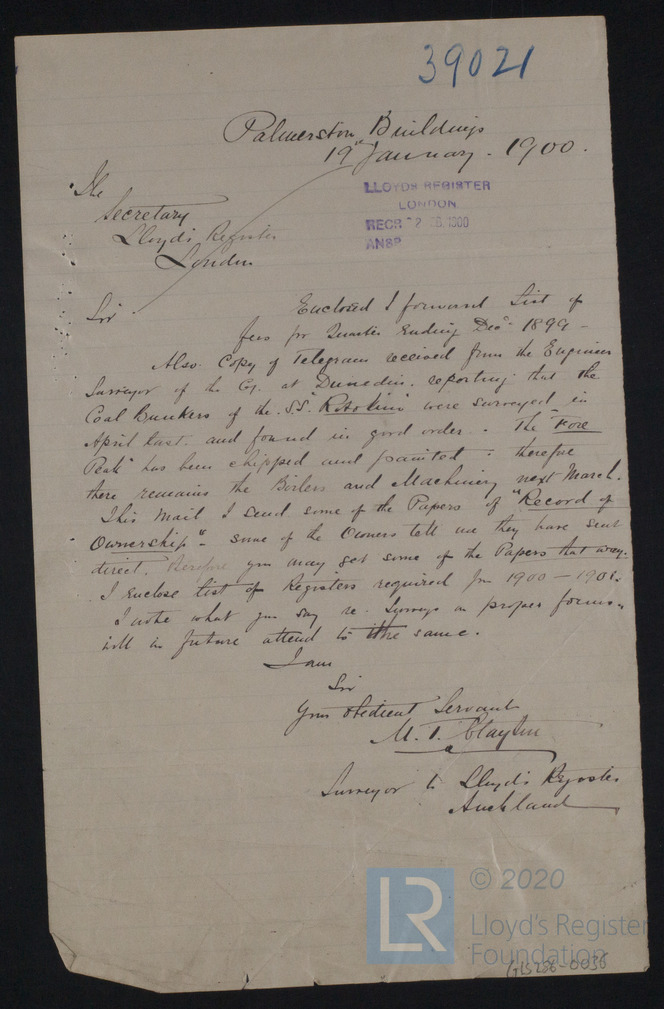 39021
Palmerston Buildings
19th January. 1900.
The
Secretary
Lloyd's Register
London
LLOYDS REGISTER
LONDON
RECD 2 1900
ANSD
Sir
Enclosed I forward List of
fees for Quarter Ending Decr 1899 -
Also. Copy of Telegram received from the Engineer
Surveyor of the Coy. at Dunedin. reporting that the
Coal Bunkers of the. S.S. "Rotokino" were surveyed in
April last. and found in good order. - The "Fore
Peak" has been chipped and painted : therefore
there remains the Boilers and Machinery next March.
This Mail I send some of the Papers of "Record of
Ownership" - some of the Owners tell me they have sent
direct. Therefore you may get some of the Papers that way.
I enclose list of Registers required for 1900 - 1901.
I note what you say re. Surveys on proper forms..
will in future attend to the same.
I am
Sir
Your obedient Servant
M. T. Clayton
Surveyor to Lloyd's Register
Auckland
LR
© 2020
Lloyd's Register
Foundation
GLS286-0036